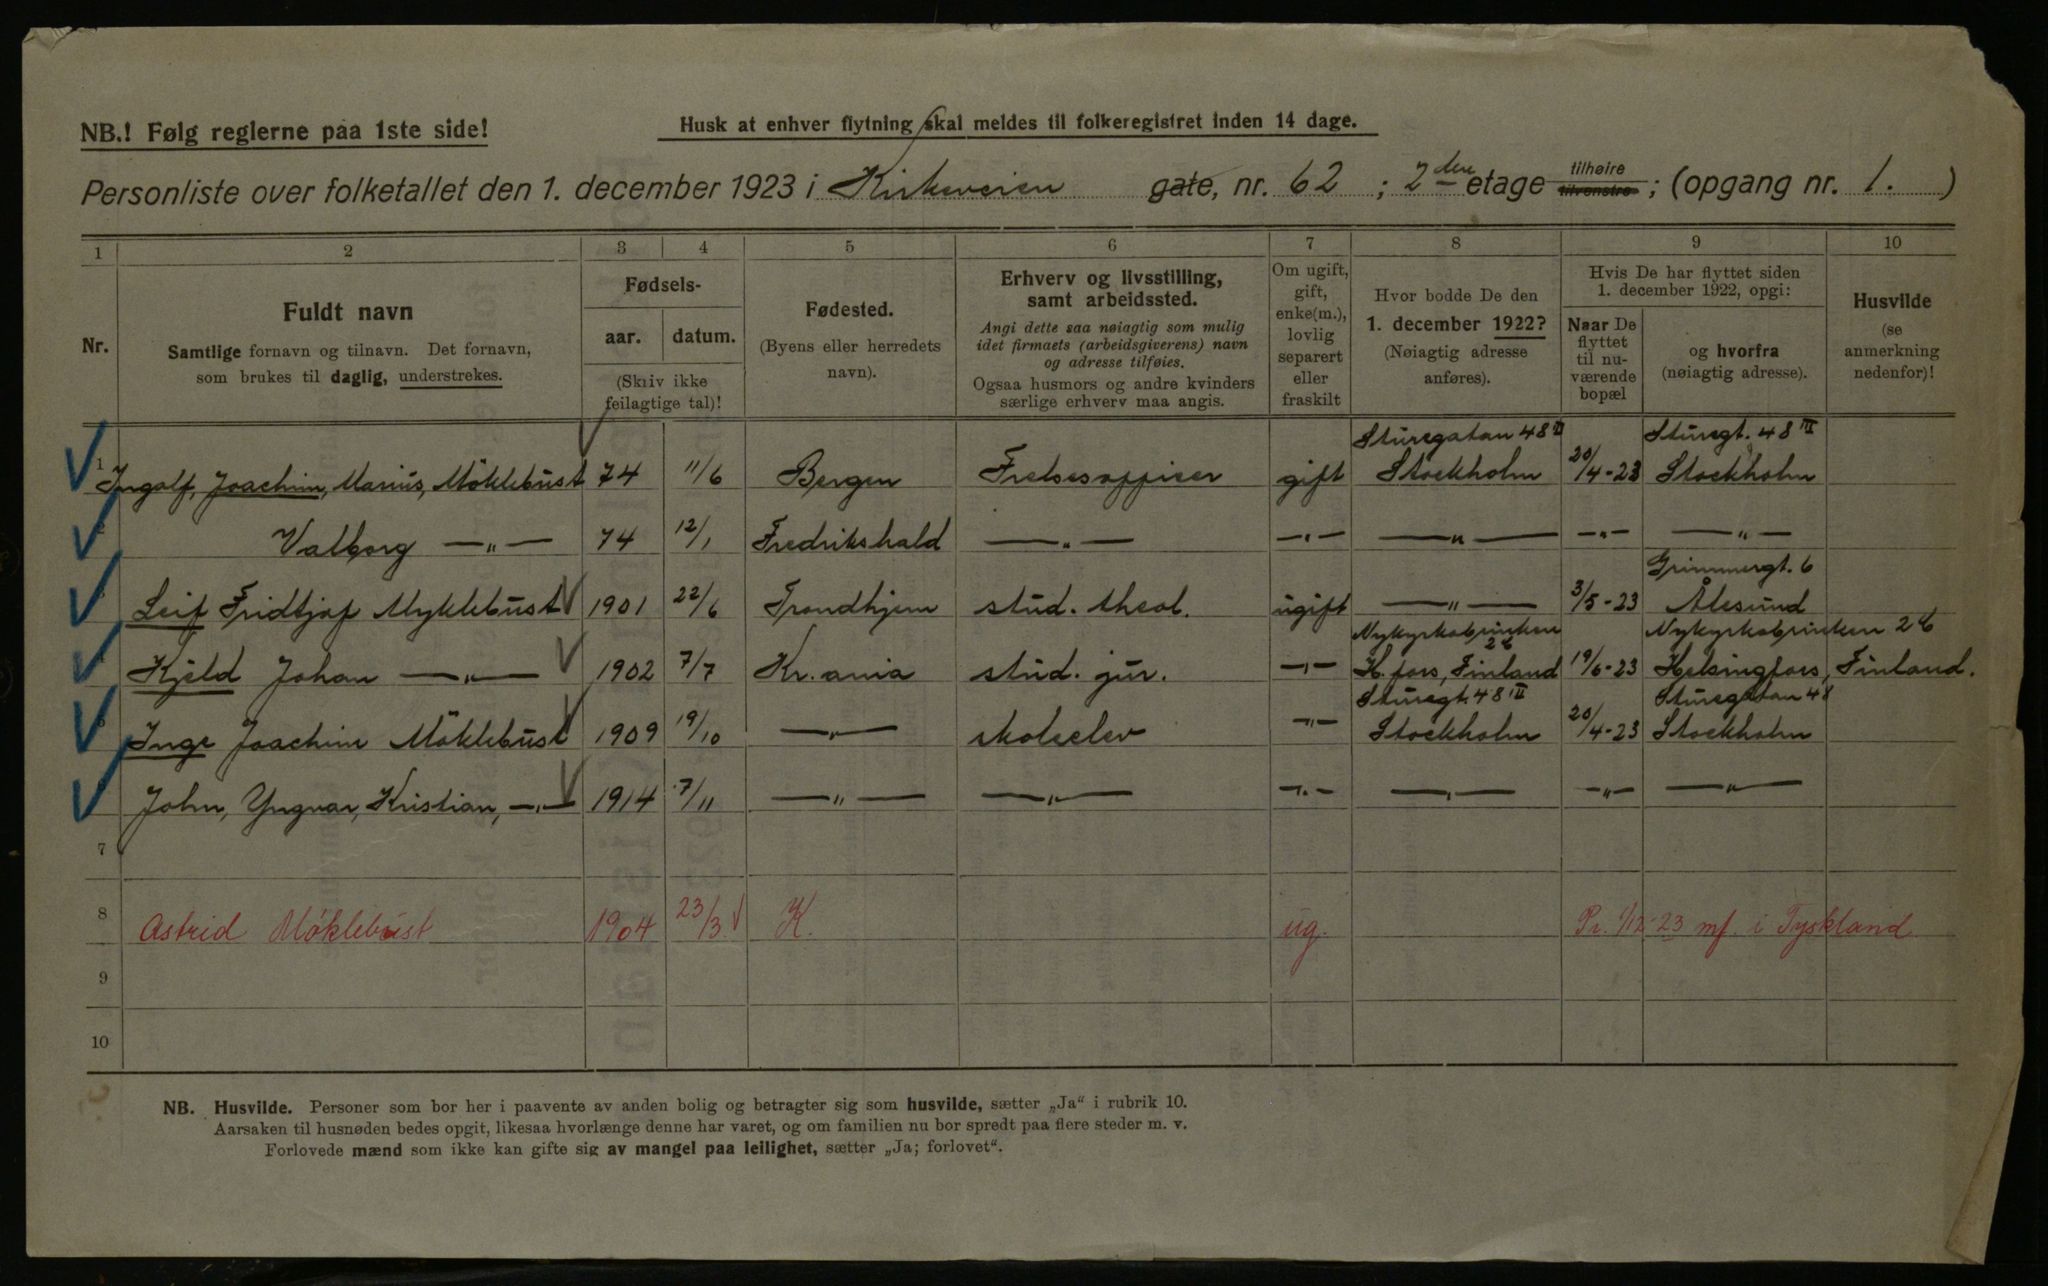 NB.! Følg reglerne paa 1ste side!
Husk at enhver flytning skal meldes til folkeregistret inden 14 dage.
Personliste over folketallet den 1. december 1923 i Kirkeveien gate, nr. 62 ; 2den etage tilhøire tilvenstre ; (opgang nr. 1. )
1 2 3 4 5 6 7 8 9 10
Nr.
Fuldt navn
Samtlige fornavn og tilnavn. Det fornavn,
som brukes til daglig, understrekes.
Fødsels-
aar. datum.
(Skriv ikke
feilagtige tal)!
Fødested.
(Byens eller herredets
navn).
Erhverv og livsstilling,
samt arbeidssted.
Angi dette saa nøiagtig som mulig
idet firmaets (arbeidsgiverens) navn
og adresse tilføies.
Ogsaa husmors og andre kvinders
særlige erhverv maa angis.
Om ugift,
gift,
enke(m.),
lovlig
separert
eller
fraskilt
Hvor bodde De den
1. december 1922?
(Nøiagtig adresse
anføres).
Hvis De har flyttet siden
1. december 1922, opgi:
Naar De
flyttet
til nu-
værende
bopæl
og hvorfra
(nøiagtig adresse).
Husvilde
(se
anmerkning
nedenfor)!
Sturegatan 48 III Sturegt. 48 III
1 Ingolf, Joachim, Marius, Möklebust 74 11/6 Bergen Frelsesofficer gift Stockholm 20/4-23 Stockholm
2 Valborg —„— 74 12/1 Fredrikshald —„— —„— —„— —„— —„—
Grimmergt. 6
Leif Fridtjof Myklebust 1901 22/6 Trondhjem stud. theol. ugift —„— 3/5-23 Ålesund
Nykyrkobrinken 2C Nykyrkobrinken 2C
Kjeld Johan —„— 1902 7/7 Kr.ania stud. jur. —„— H.fors, Finland 19/6-23 Helsingfors, Finland.
Sturegt. 48 III Sturegatan 48
Inge Joachim Möklebust 1909 19/10 —„— skoleelev —„— Stockholm 20/4-23 Stockholm
John, Yngvar, Kristian, —„— 1914 7/11 —„— —„— —„— —„— —„— —„—
7
8 Astrid Möklebust 1904 23/3 K. ug. Pr. 1/12-23 mf. i Tyskland
9
10
NB. Husvilde. Personer som bor her i paavente av anden bolig og betragter sig som husvilde, sætter „Ja“ i rubrik 10.
Aarsaken til husnøden bedes opgit, likesaa hvorlænge denne har varet, og om familien nu bor spredt paa flere steder m. v.
Forlovede mænd som ikke kan gifte sig av mangel paa leilighet, sætter „Ja; forlovet“.